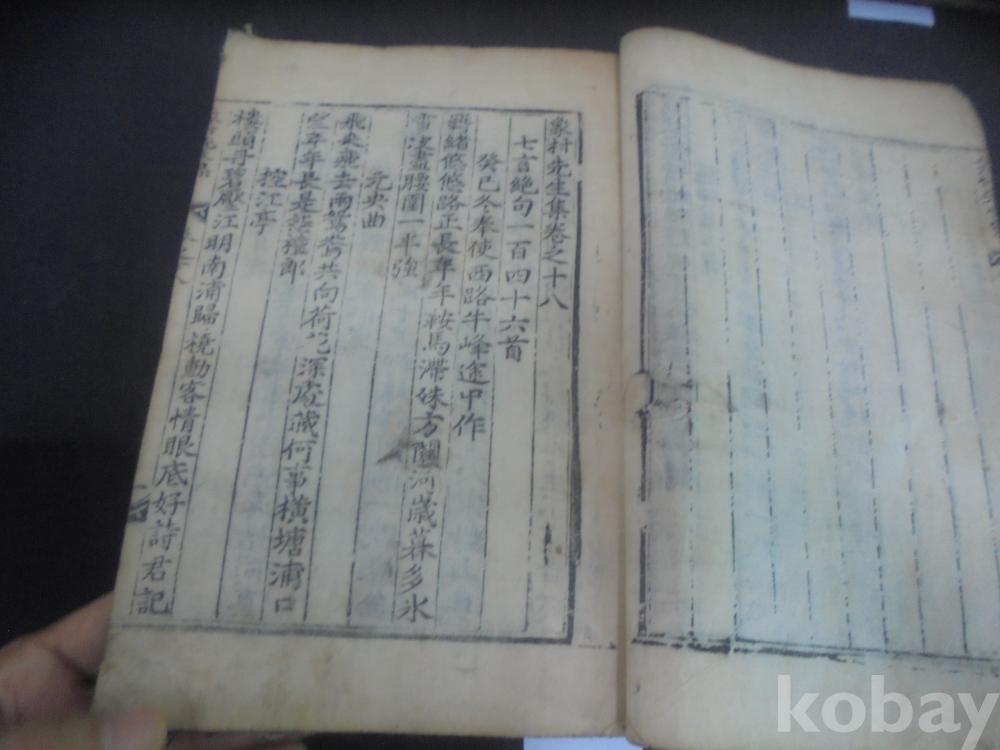 象村先生集卷之十八
七言絶句一百四十六首
癸巳冬奉使西路牛峰途中作
緖悠悠路正長年年鞍馬滯殊方關河歲暮多氷
雪凌晝腰圍一半強
元央曲
飛來飛去兩鴛鴦共向荷花深處藏何事橫塘浦口
年年長是
控江亭
樓頭丹碧江明南浦歸橈動客情眼底好詩君記
kobay